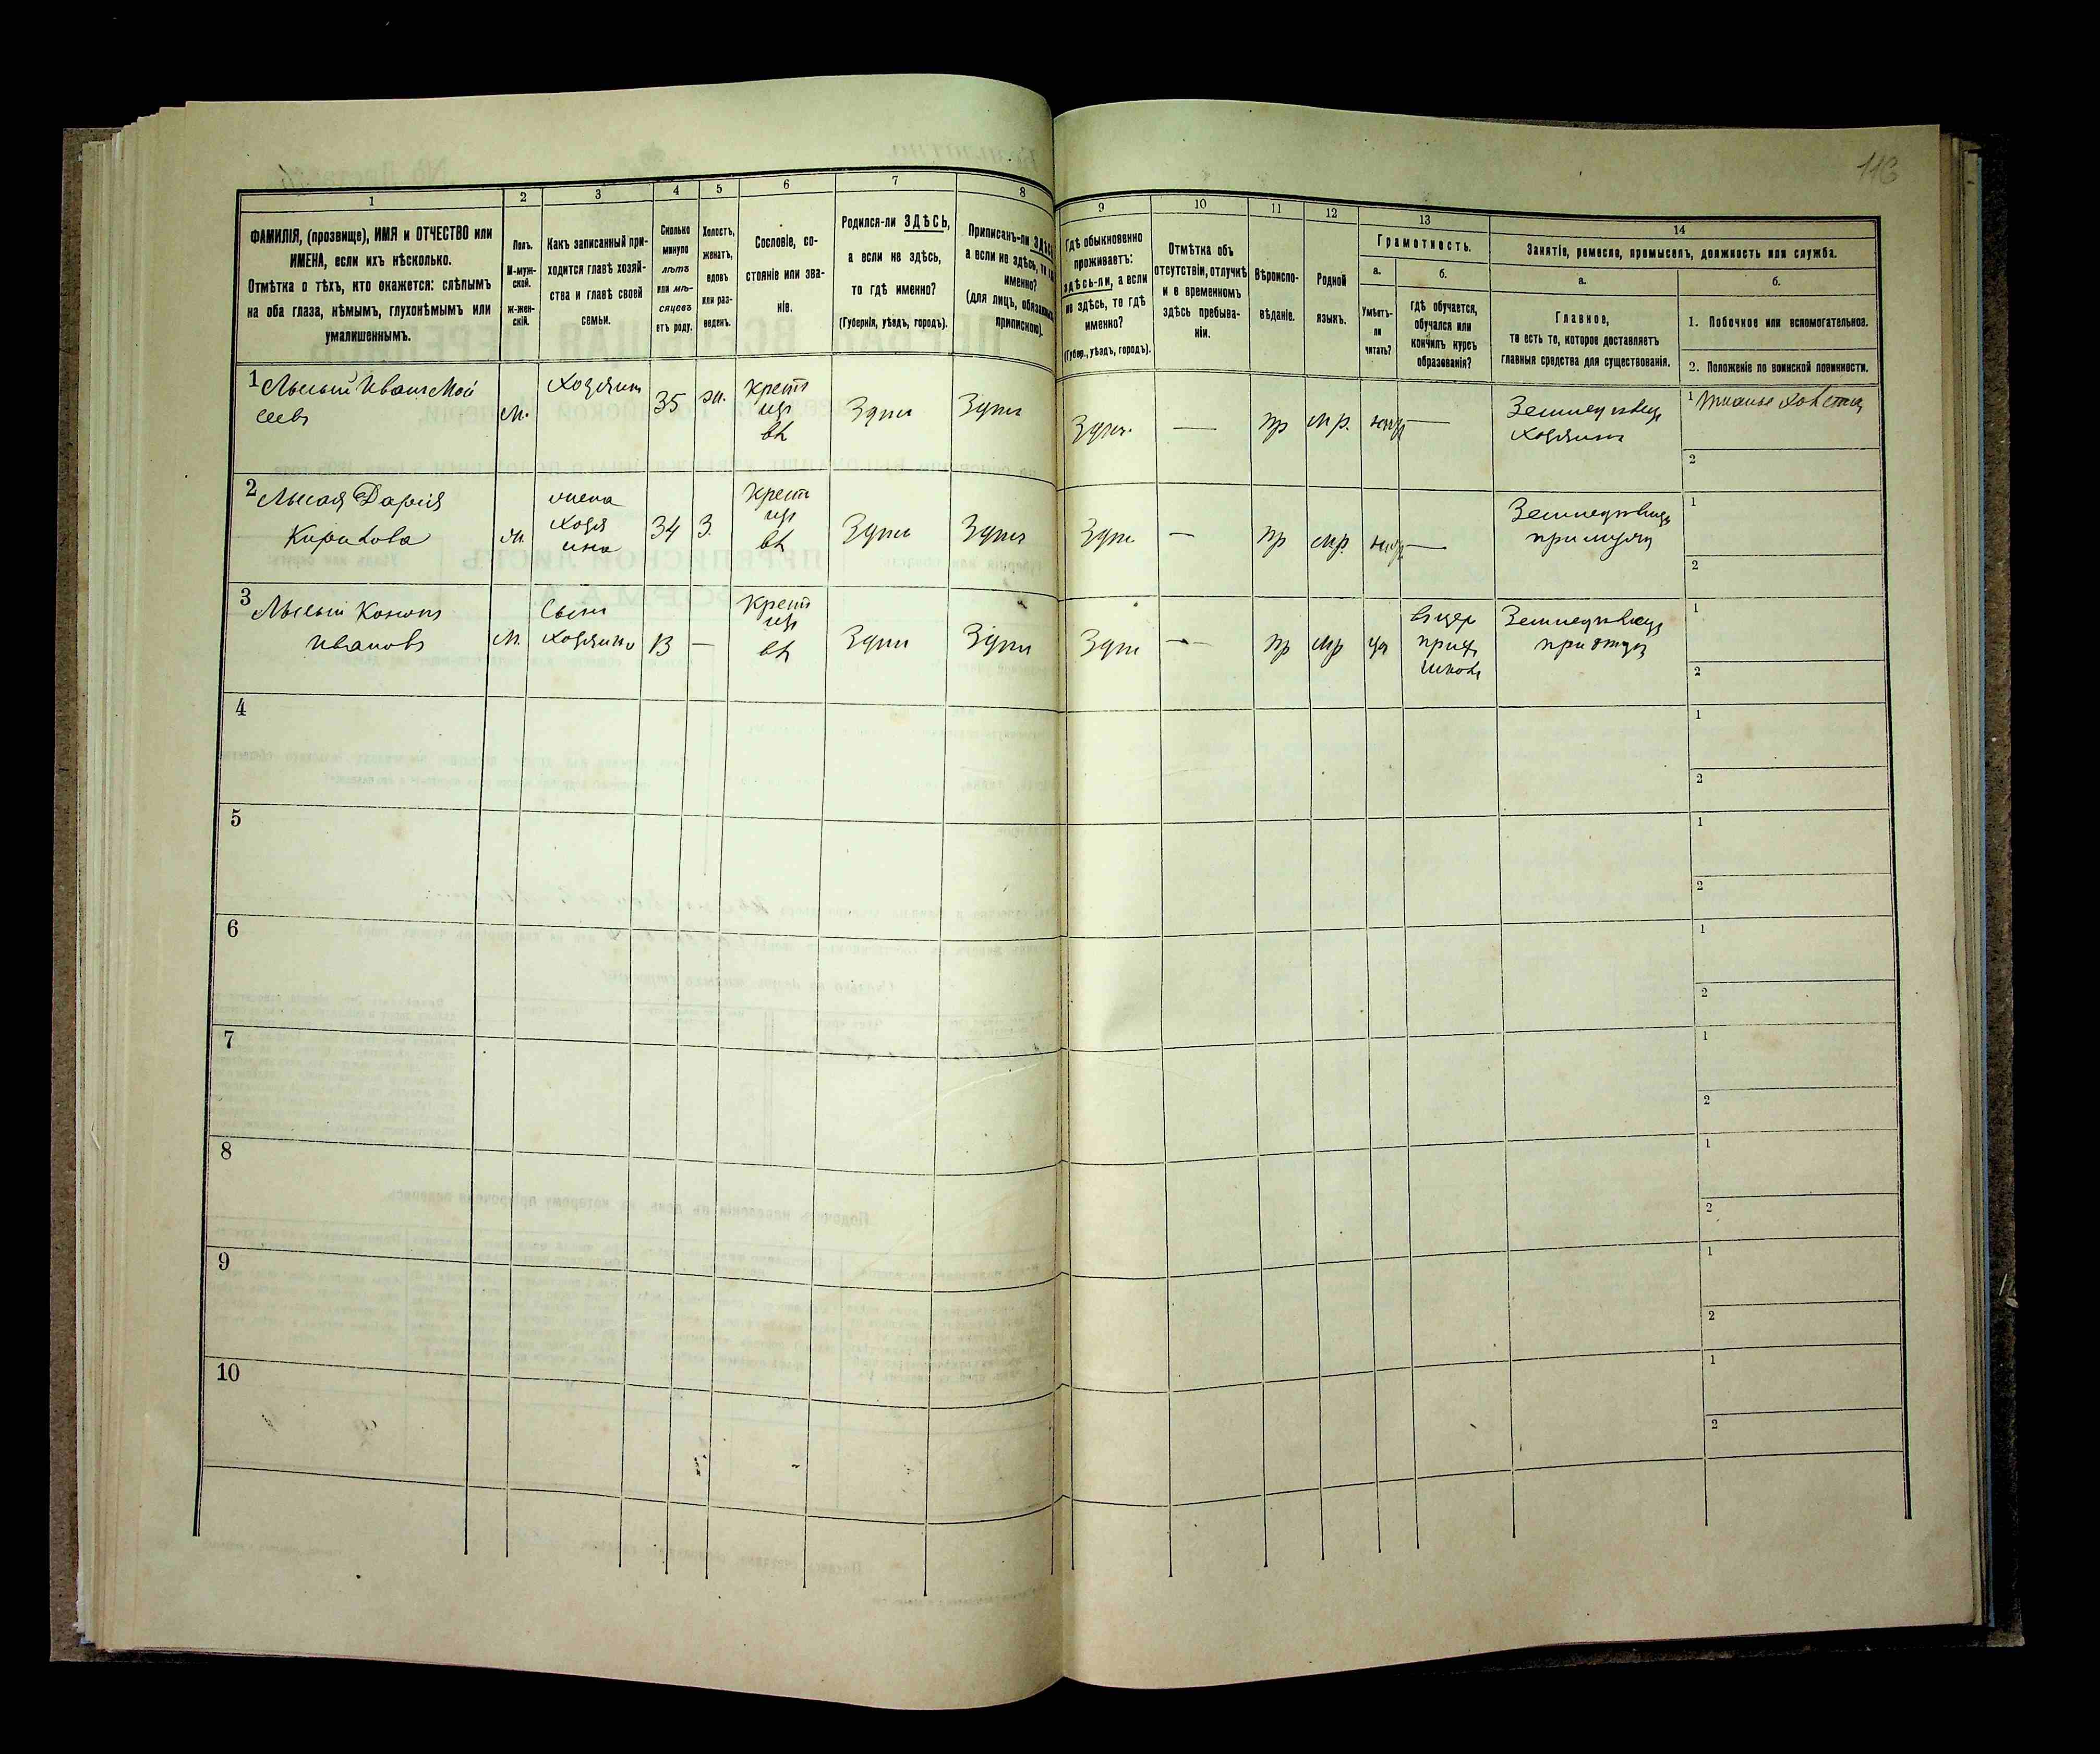 116
1
2
3
4
5
6
7
8
9
10
11
12
13
14
ФАМИЛІЯ, (прозвище), ИМЯ и ОТЧЕСТВО или
ИМЕНА, если ихъ нѣсколько.
Отмѣтка о тѣхъ, кто окажется: слѣпымъ
на оба глаза, нѣмымъ, глухонѣмымъ или
умалишеннымъ.
Полъ.
М-муж-
ской.
ж-жен-
скій.
Какъ записанный при-
ходится главѣ хозяй-
ства и главѣ своей
семьи.
Сколько
минуло
лѣтъ
или мѣ-
сяцевъ
отъ роду.
Холостъ,
женатъ,
вдовъ
или раз-
веденъ.
Сословіе, со-
стояніе или зва-
ніе.
Родился-ли ЗДѢСЬ,
а если не здѣсь,
то гдѣ именно?
(Губернія, уѣздъ, городъ).
Приписанъ-ли ЗДѢСЬ
а если не здѣсь, то гдѣ
именно?
(для лицъ, обязанныхъ
припискою).
Гдѣ обыкновенно
проживаетъ:
здѣсь-ли, а если
не здѣсь, то гдѣ
именно?
(Губер., уѣздъ, городъ).
Отмѣтка объ
отсутствіи, отлучкѣ
и о временномъ
здѣсь пребыва-
ніи.
Вѣроиспо-
вѣданіе.
Родной
языкъ.
Грамотность.
а.
Умѣетъ-
ли
читать?
б.
Гдѣ обучается,
обучался или
кончилъ курсъ
образованія?
Занятіе, ремесло, промыселъ, должность или служба.
а.
Главное,
то есть то, которое доставляетъ
главныя средства для существованія.
б.
1. Побочное или вспомогательное.
2. Положеніе по воинской повинности.
1 Лысый Иванъ Мой
сеевъ
м.
Хозяинъ
35
ж.
крест
из
вл
Здѣсь
Здѣсь
Здѣсь
—
пр
мр.
—
Земледѣлец
хозяинъ
1
2
2 Лысая Дарія
Кирилова
ж.
жена
хозя
ина
34
З.
крест
из
вл
Здѣсь
Здѣсь
Здѣсь
—
пр
мр.
—
Земледѣлец
при мужѣ
1
2
3 Лысый Кононъ
Ивановъ
м.
Сынъ
хозяина
13
—
крест
из
вл
Здѣсь
Здѣсь
Здѣсь
—
пр
мр
да
въ цер
прих
школѣ
Земледѣлец
при отцѣ
1
2
4
1
2
5
1
2
6
1
2
7
1
2
8
1
2
9
1
2
10
1
2